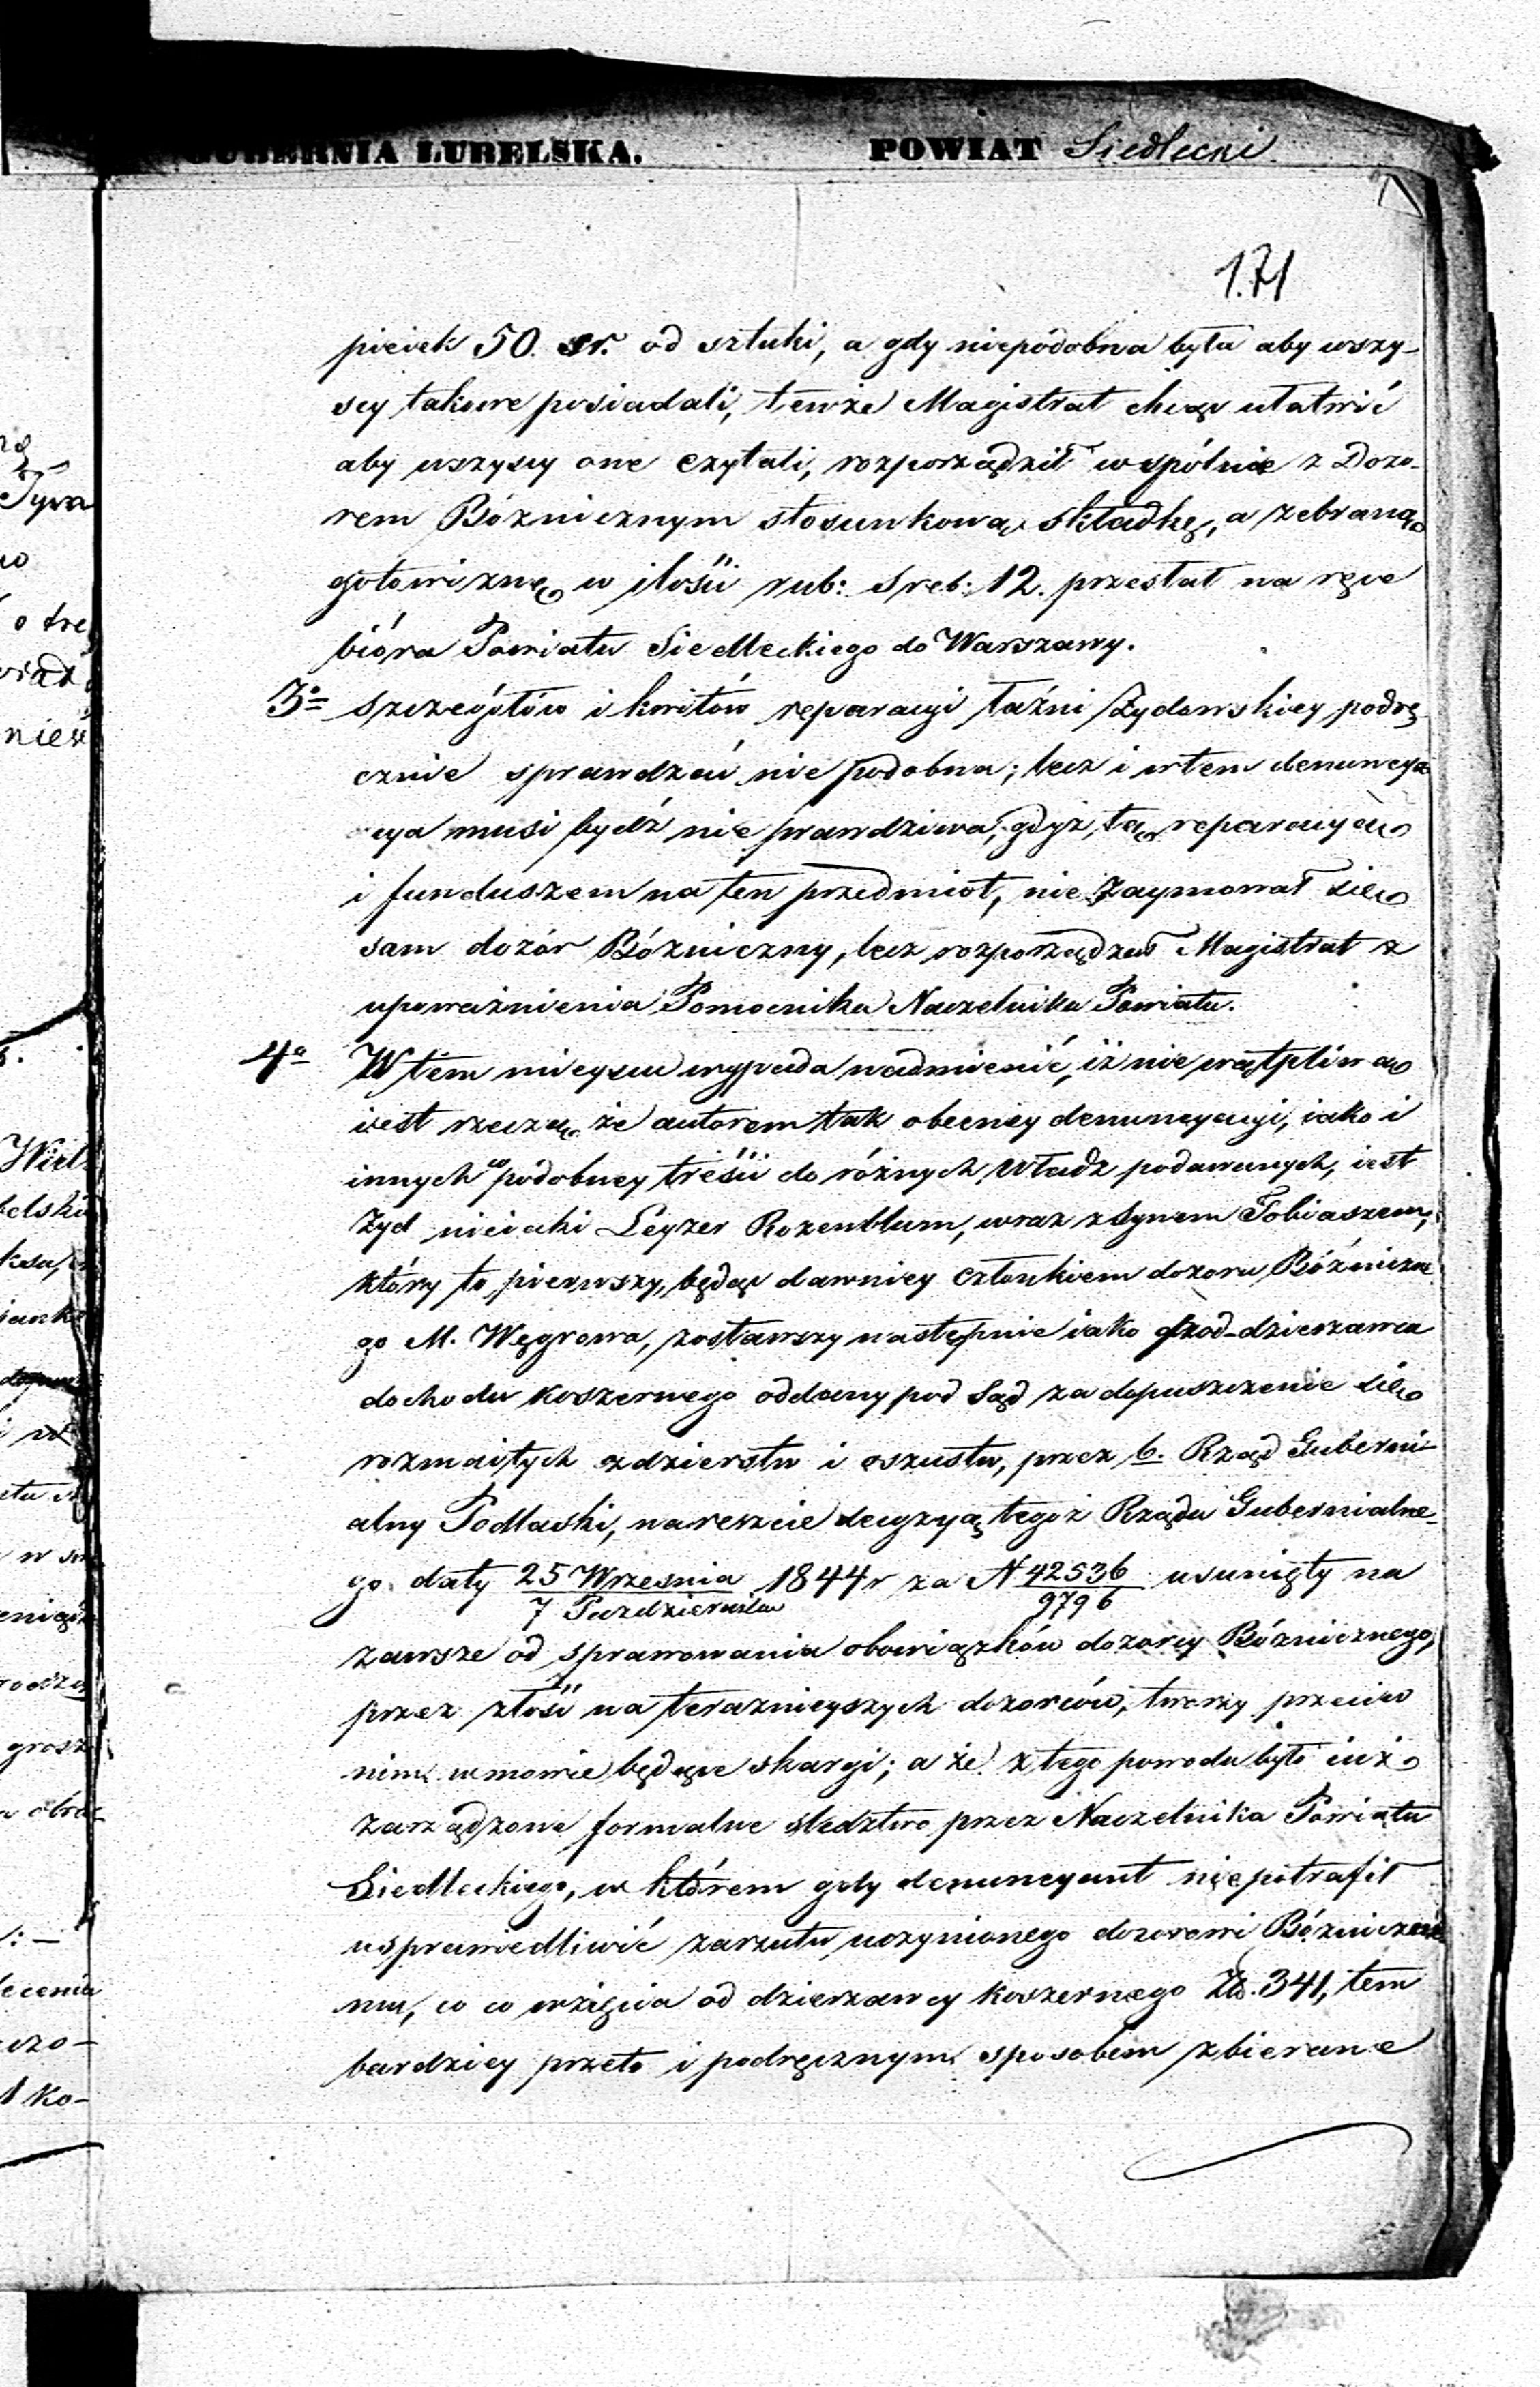 GUBERNIA LUBELSKA. POWIAT Siedlecki
171
pieiek 50. sr. od sztuki, a gdy niepodobna była aby wszy-
scy takowe posiadali, tenże Magistrat chcąc ułatwić
aby wszyscy one czytali, rozporządził wspólnie z Dozo-
rem Bóżnicznym stosunkową składkę, a zebraną
gotowiznę w ilości rub: sreb: 12. przesłał na ręce
bióra Powiatu Siedleckiego do Warszawy.
3o szczegółów i kwitów reparacyi łaźni Żydowskiey podrę-
cznie sprawdzać nie podobna; lecz i w tem denuncya
cya musi bydź nie prawdziwa, gdyż tą reparacyą
i funduszem na ten przedmiot, nie zaymował się
sam dozór Bózniczny, lecz rozporządzał Magistrat z
upoważnienia Pomocnika Naczelnika Powiatu.
4o W tem mieyscu wypada nadmienić, iż nie wątpliwą
iest rzeczą, że autorem tak obecney denuncyacyi, iako i
innych podobney treści do różnych Władz podawanych, iest
Żyd nieiaki Leyzer Rozenblum, wraz z Synem Tobiaszem,
który to pierwszy, będąc dawniey członkiem dozoru Bóżniczne
go M. Węgrowa, zostawszy następnie iako pod-dzierzawca
dochodu koszernego oddany pod Sąd za dopuszczenie się
rozmaitych zdzierstw i oszustw, przez b. Rząd Guberni-
alny Podlaski, nareszcie decyzyą tegoż Rządu Gubernialne-
go daty 25 Września 1844 r za N 42536 usunięty na
7 Pazdziernika 9796
zawsze od sprawowania obowiązków dozorcy Bóżnicznego,
przez złość na terazniejszych dozorców, tworzy przeciw
nim w mowie będące skargi; a że z tego powodu było iuż
zarządzone formalne sledztwo przez Naczelnika Powiatu
Siedleckiego, w którem gdy denuncyant nie potrafił
usprawiedliwić zarzutu, uczynionego dozorowi Bóżniczne
mu, co do wzięcia od dzierzawcy koszernego Zło. 341, tem
bardziey przeto i podręcznym sposobem zbierane